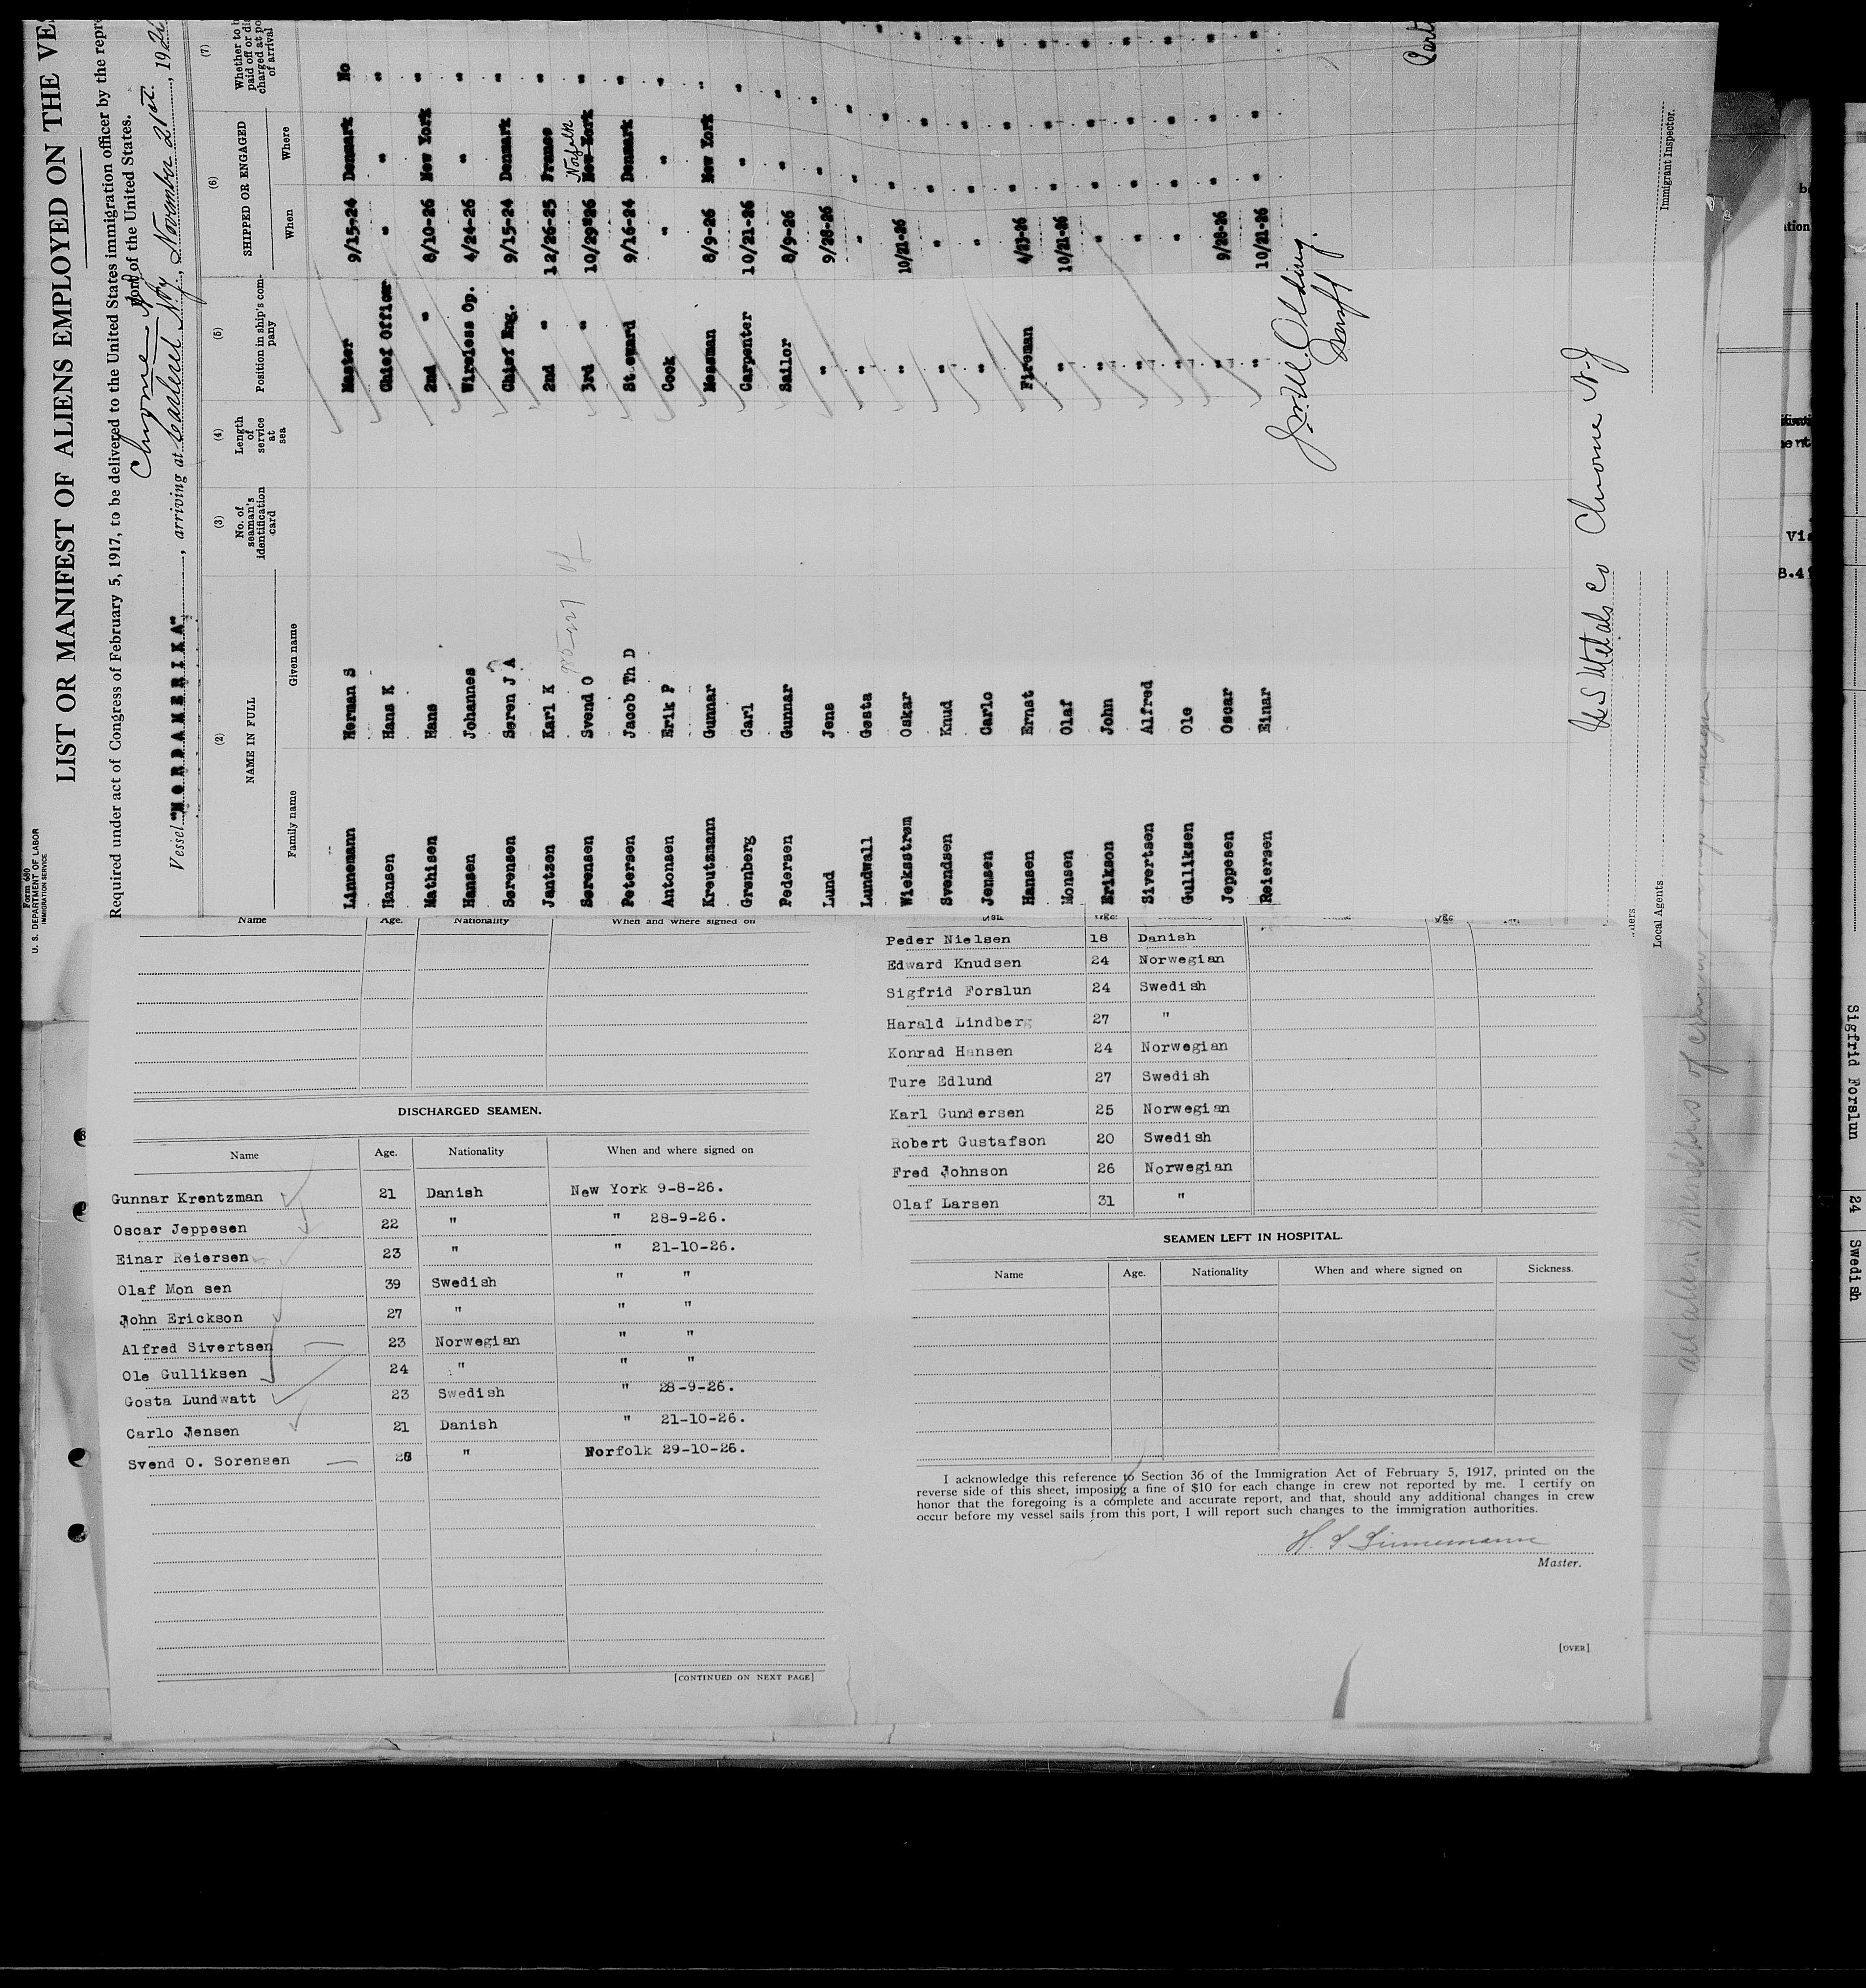 Form 680
U. S. DEPARTMENT OF LABOR
IMMIGRATION SERVICE
LIST OR MANIFEST OF ALIENS EMPLOYED ON THE VE
Required under act of Congress of February 5, 1917, to be delivered to the United States immigration officer by the repr
port of the United States.
Vessel "NORDAMERIKA", arriving at Carteret N.J., November 21st, 192
(2) (3) (4) (5) (6) (7)
NAME IN FULL No. of seaman's identification card Length of service at sea Position in ship's company SHIPPED OR ENGAGED Whether to b paid off or di charged at po of arrival
Family name Given name When Where
Linnemann Herman S Master 9/15-24 Denmark No
Hansen Hans K Chief Officer " " "
Mathisen Hans 2nd " 8/10-26 New York "
Hansen Johannes Wireless Op. 4/24-26 " "
Sørensen Søren J A Chief Eng. 9/15-24 Denmark "
Jantzen Karl K 2nd " 12/26-25 France "
Sørensen Svend O 3rd " 10/29-26 New York Norfolk "
Petersen Jacob Th D Steward 9/16-24 Denmark "
Antonsen Erik P Cook " " "
Kreutzmann Gunnar Messman 8/9-26 New York "
Grønberg Carl Carpenter 10/21-26 " "
Pedersen Gunnar Sailor 8/9-26 " "
Lund Jens " 9/28-26 " "
Lundwall Gøsta " " " "
Wieksstrøm Oskar " 10/21-26 " "
Svendsen Knud " " " "
Jensen Carlo " " " "
Hansen Ernst Fireman 4/23-26 " "
Monsen Olaf " 10/21-26 " "
Erikson John " " " "
Sivertsen Alfred " " " "
Gulliksen Ole " " " "
Jeppesen Oscar " 9/28-26 " "
Reiersen Einar " 10/21-26 " "
U S Metals Co Chrome N.J
Local Agents
Immigrant Inspector.
Name Age. Nationality When and where signed on
DISCHARGED SEAMEN.
Name Age. Nationality When and where signed on
Gunnar Krentzman 21 Danish New York 9-8-26.
Oscar Jeppesen 22 " " 28-9-26.
Einar Reiersen 23 " " 21-10-26.
Olaf Mon sen 39 Swedish " "
John Erickson 27 " " "
Alfred Sivertsen 23 Norwegian " "
Ole Gulliksen 24 " " "
Gosta Lundwatt 23 Swedish " 28-9-26.
Carlo Jensen 21 Danish " 21-10-26.
Svend O. Sorensen " Norfolk 29-10-26.
[CONTINUED ON NEXT PAGE]
Peder Nielsen 18 Danish
Edward Knudsen 24 Norwegian
Sigfrid Forslun 24 Swedish
Harald Lindberg 27 "
Konrad Hansen 24 Norwegian
Ture Edlund 27 Swedish
Karl Gundersen 25 Norwegian
Robert Gustafson 20 Swedish
Fred Johnson 26 Norwegian
Olaf Larsen 31 "
SEAMEN LEFT IN HOSPITAL.
Name Age. Nationality When and where signed on Sickness.
I acknowledge this reference to Section 36 of the Immigration Act of February 5, 1917, printed on the
reverse side of this sheet, imposing a fine of $10 for each change in crew not reported by me. I certify on
honor that the foregoing is a complete and accurate report, and that, should any additional changes in crew
occur before my vessel sails from this port, I will report such changes to the immigration authorities.
H. S Linnemann
Master.
[OVER]
Sigfrid Forslun 24 Swedish